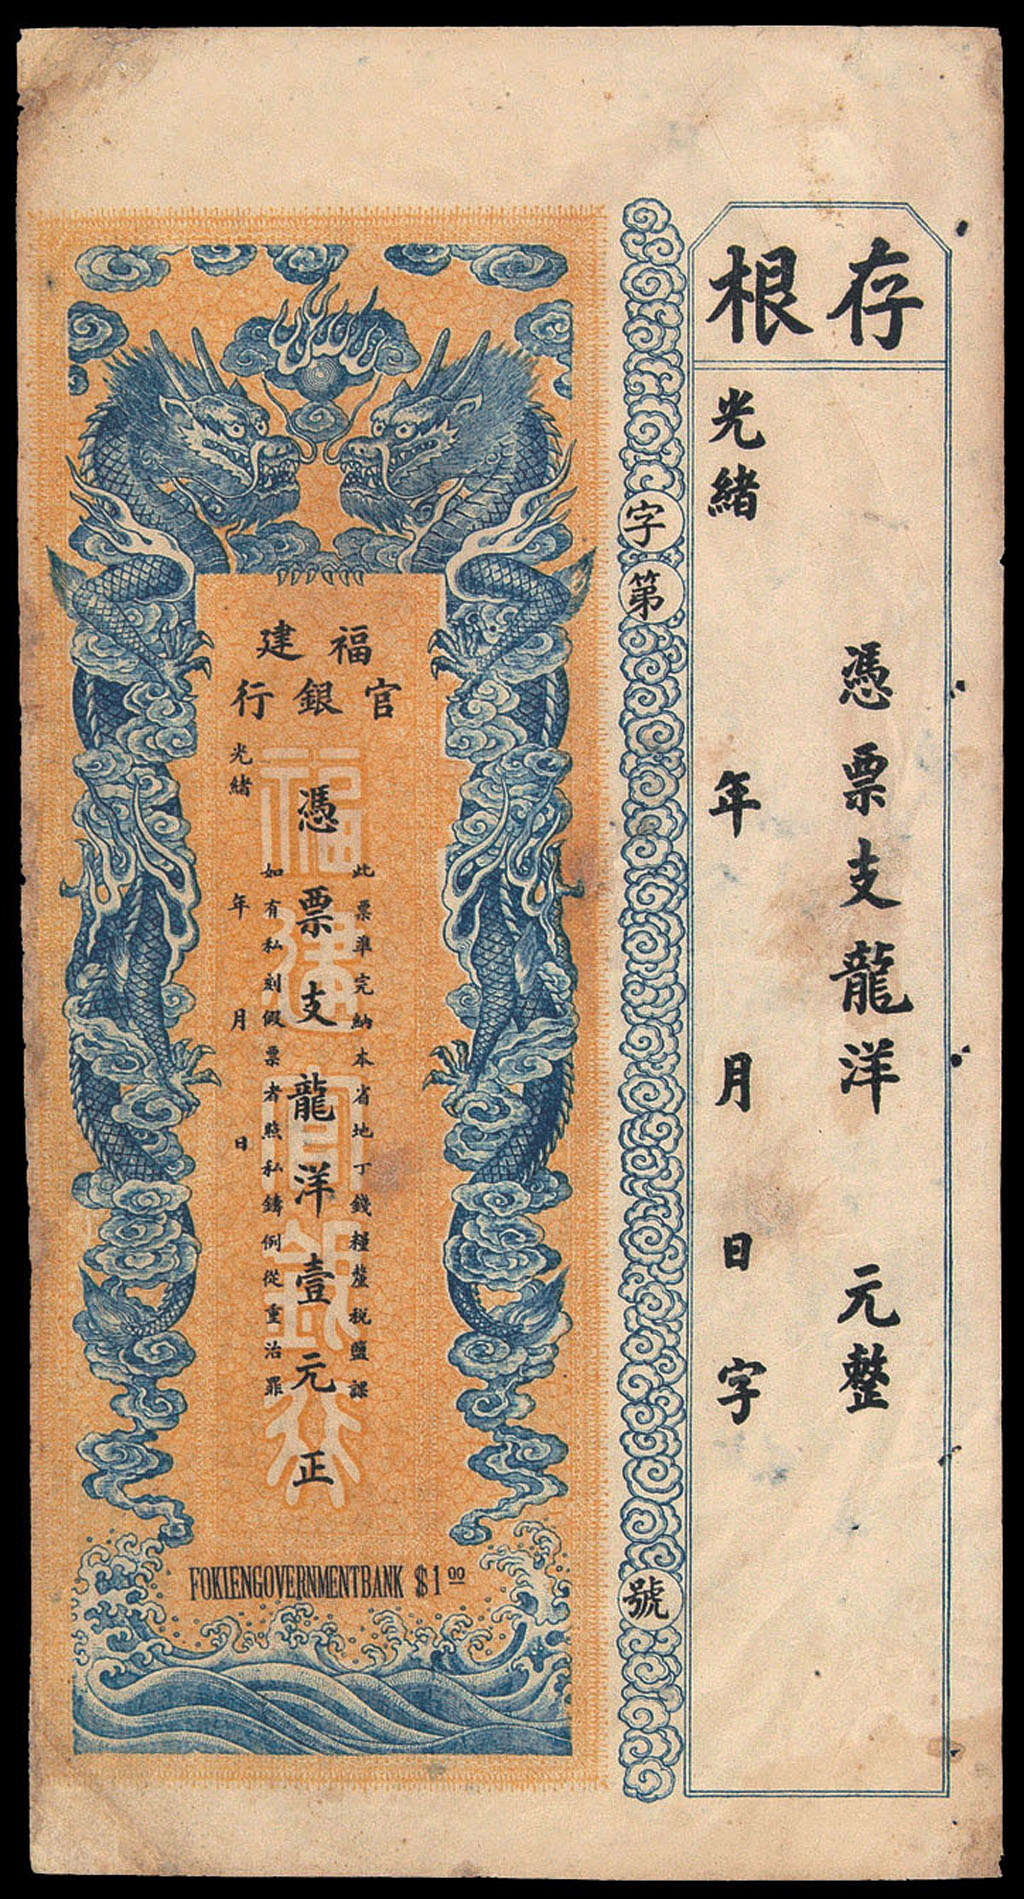 存根
憑票支龍洋 元整
光緒 年 月 日 字
字第 號
福建
官銀行
此票準完納本省地丁錢糧釐稅鹽課
憑票支龍洋壹元正
如有私刻假票者照私鑄例從重治罪
光緒 年 月 日
福建官銀行
FOKIENGOVERNMENTBANK $1 00